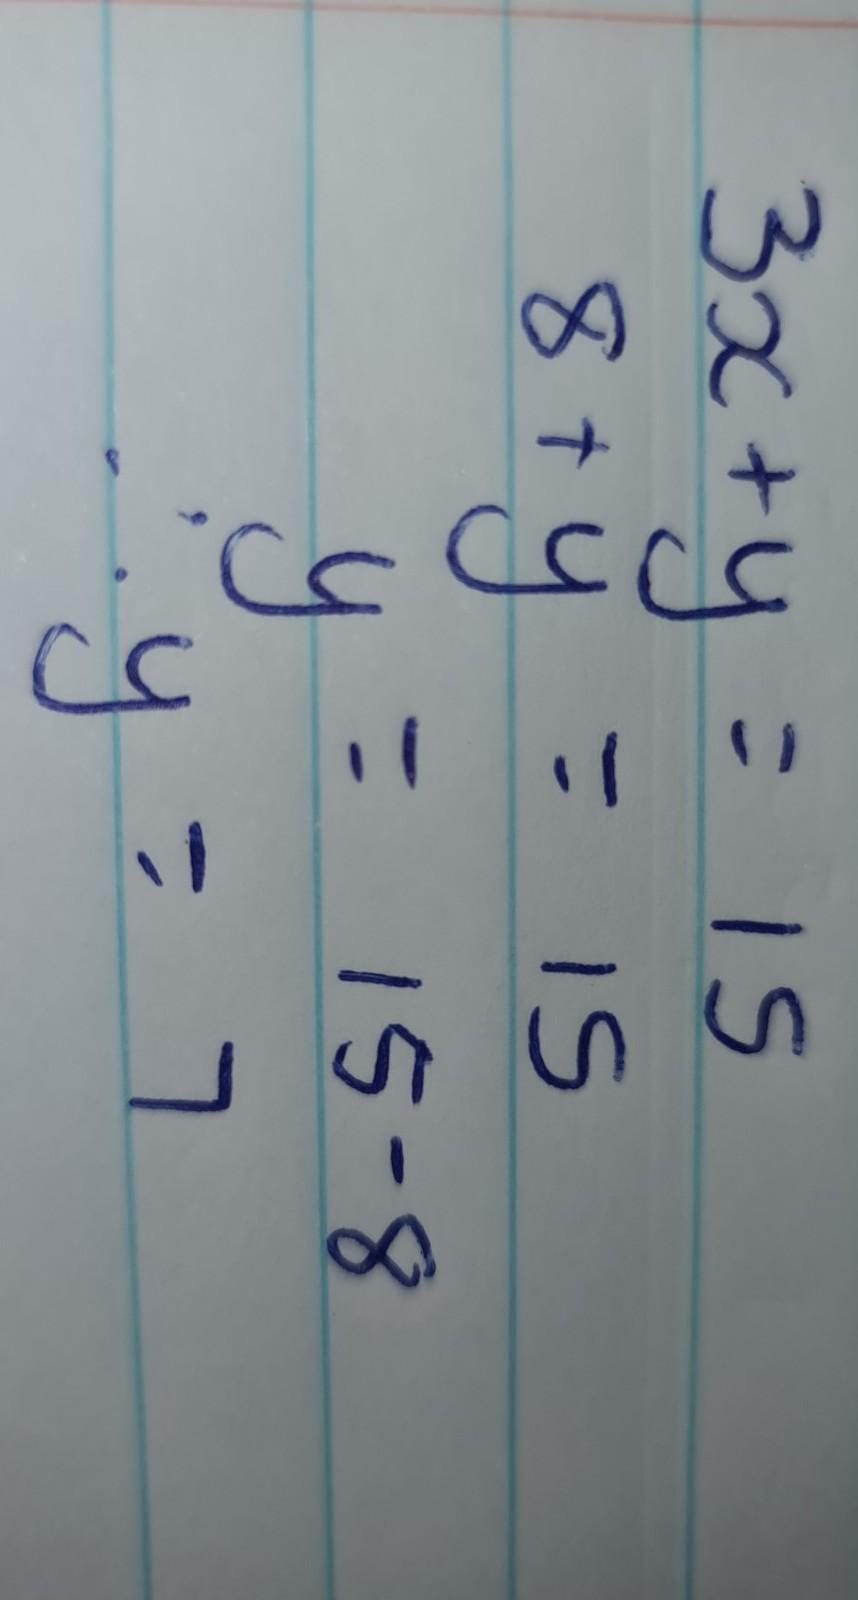 3x + y = 15
8 + y = 15
y = 15 - 8
∴ y = 7